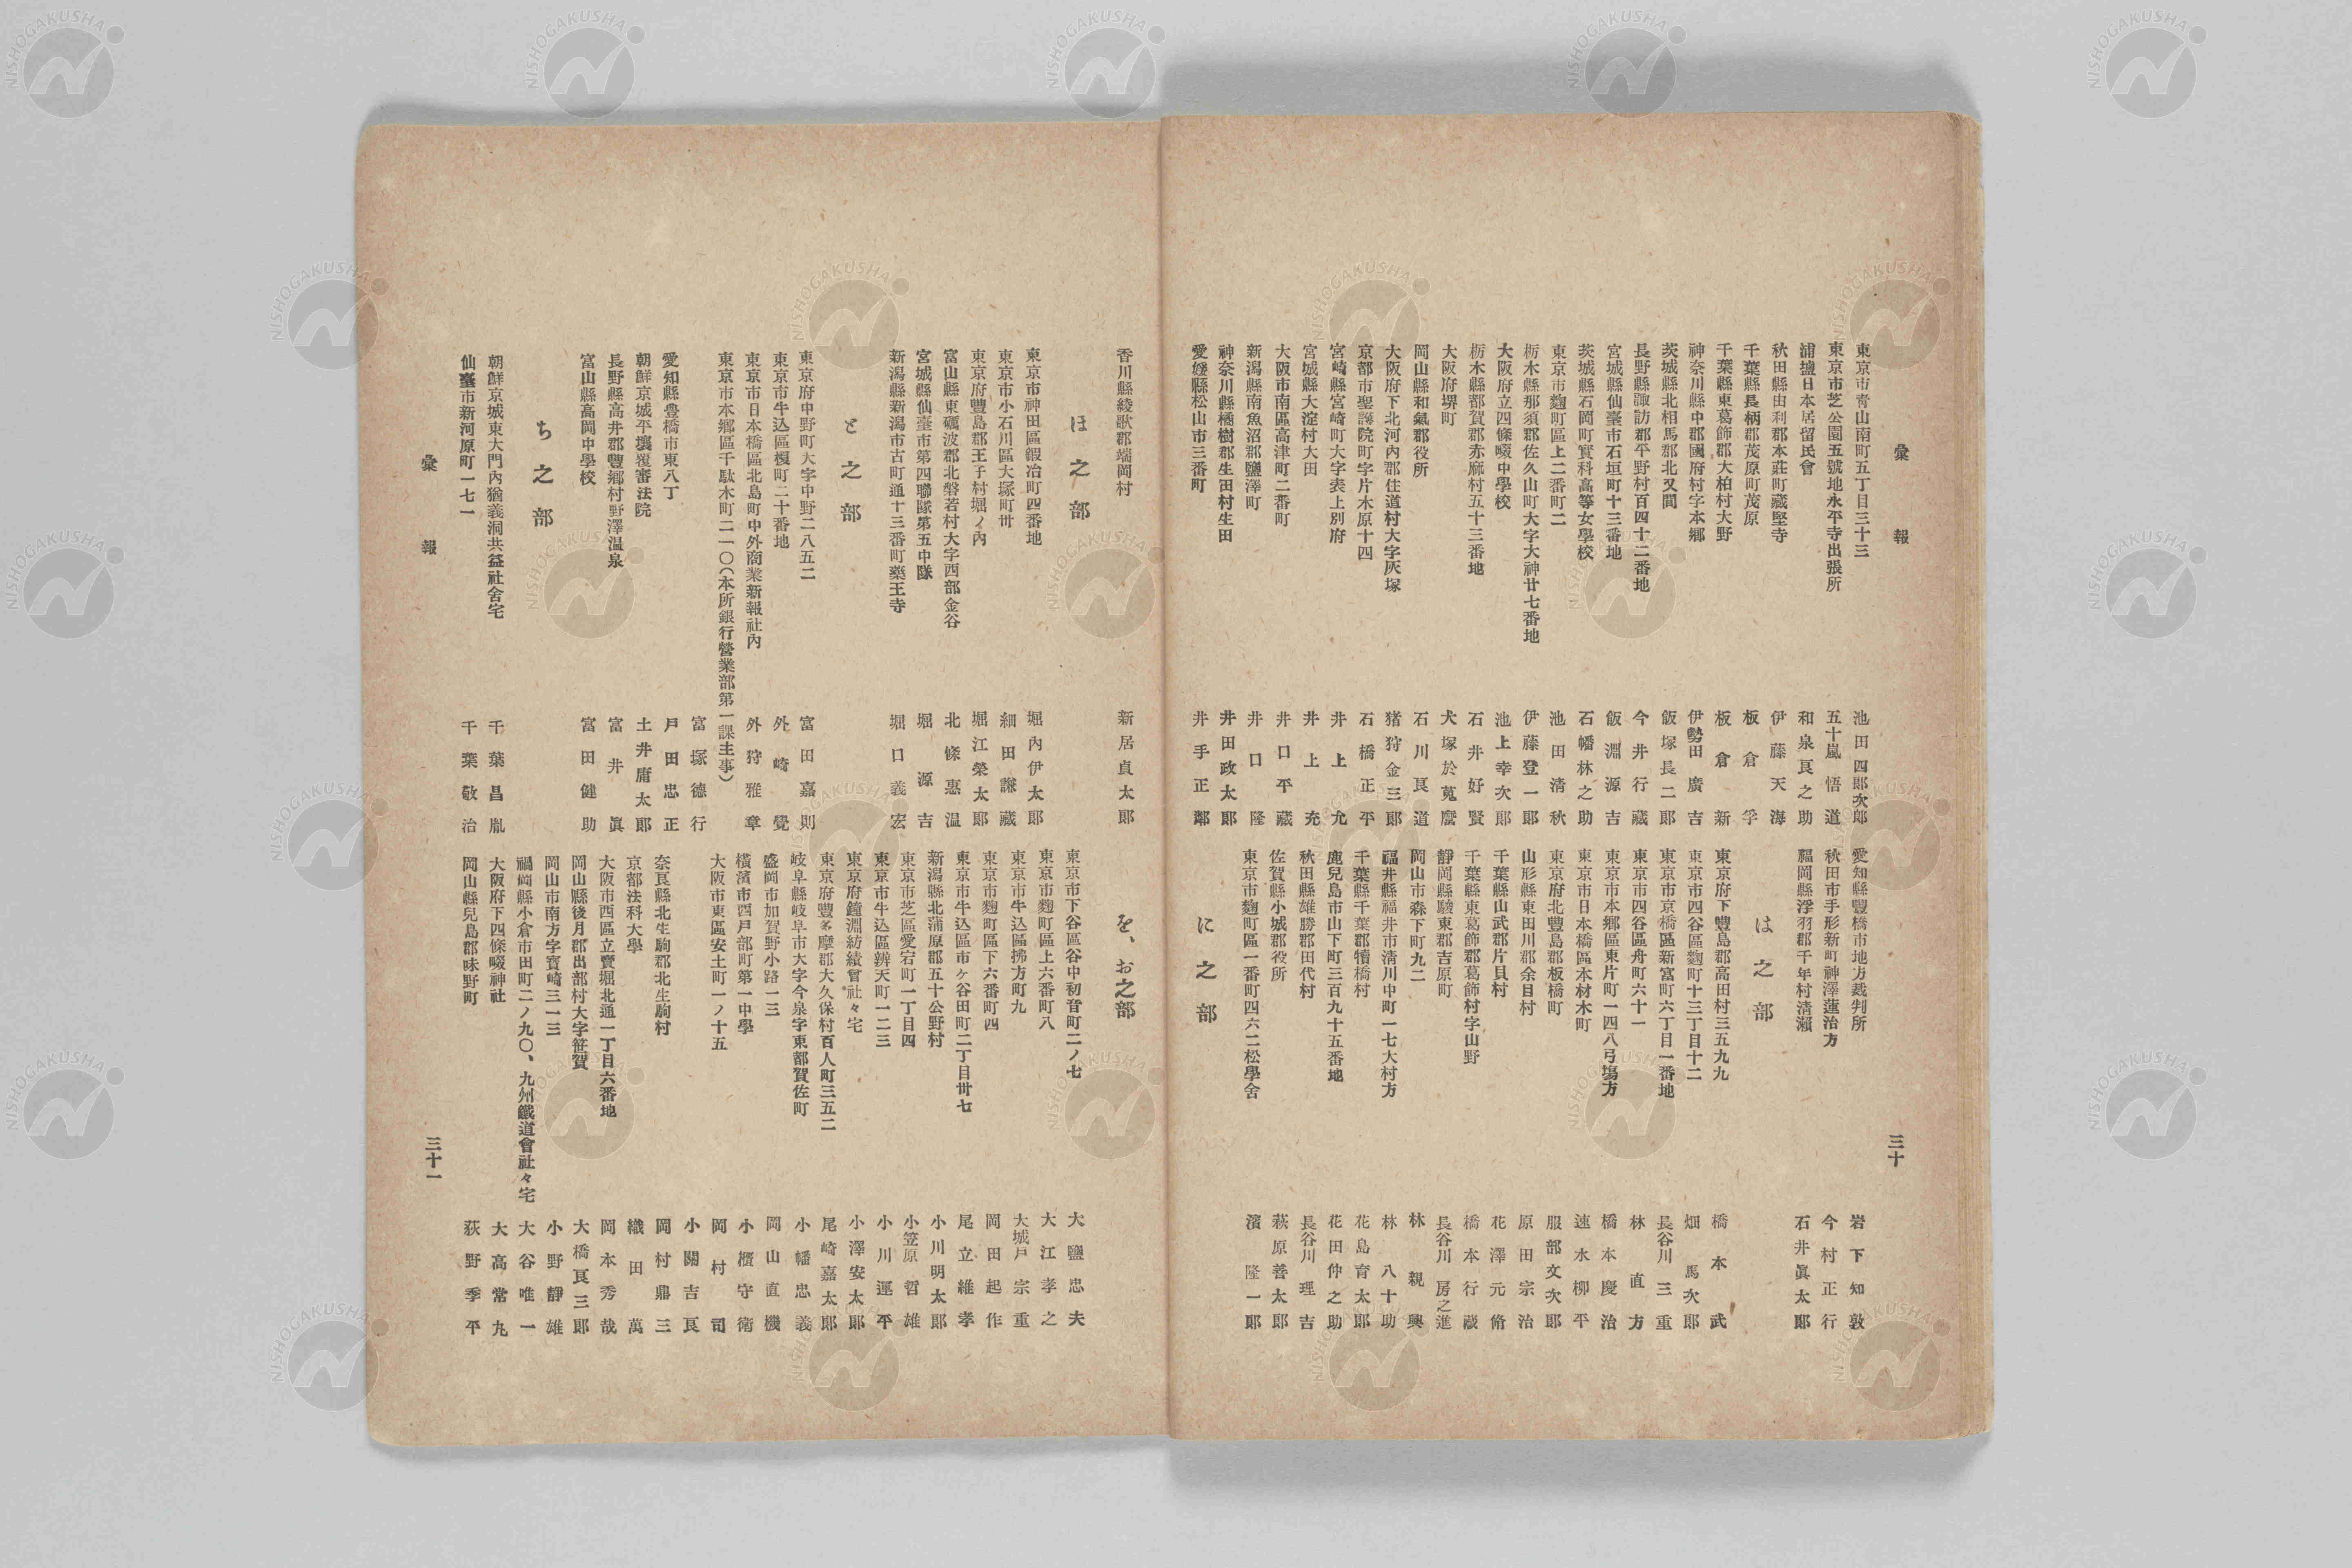 彙報
三十
東京市靑山南町五丁目三十三 池田四郞次郞
東京市芝公園五號地永平寺出張所 五十嵐悟道
浦鹽日本居留民會 和泉良之助
秋田縣由利郡本莊町藏堅寺 伊藤天海
千葉縣長柄郡茂原町茂原 板倉孚
千葉縣東葛飾郡大柏村大野 板倉新
神奈川縣中郡國府村字本鄕 伊勢田廣吉
茨城縣北相馬郡北文間 飯塚長二郞
長野縣諏訪郡平野村百四十二番地 今井行藏
宮城縣仙臺市石垣町十三番地 飯淵源吉
茨城縣石岡町實科高等女學校 石幡林之助
東京市麴町區上二番町二 池田淸秋
栃木縣那須郡佐久山町大字大神廿七番地 伊藤登一郞
大阪府立四條畷中學校 池上幸次郞
栃木縣都賀郡赤麻村五十三番地 石井好賢
大阪府堺町 犬塚於菟麿
岡山縣和氣郡役所 石川良道
大阪府下北河內郡住道村大字灰塚 猪狩金三郞
京都市聖護院町字片木原十四 石橋正平
宮崎縣宮崎町大字表上別府 井上允
宮城縣大淀村大田 井上充
大阪市南區高津町二番町 井口平藏
新潟縣南魚沼郡鹽澤町 井口隆
神奈川縣橘樹郡生田村生田 井田政太郞
愛媛縣松山市三番町 井手正鄰
愛知縣豐橋市地方裁判所 岩下知敦
秋田市手形新町神澤蓮治方 今村正行
福岡縣浮羽郡千年村淸瀨 石井眞太郞
は之部
東京府下豐島郡高田村三五九九 橋本武
東京市四谷區麴町十三丁目十二 畑馬次郞
東京市京橋區新富町六丁目一番地 長谷川三重
東京市四谷區舟町六十一 林直方
東京市本鄕區東片町一四八弓場方 橋本慶治
東京市日本橋區本材木町 速水柳平
東京府北豐島郡板橋町 服部文次郞
山形縣東田川郡余目村 原田宗治
千葉縣山武郡片貝村 花澤元脩
千葉縣東葛飾郡葛飾村字山野 橋本行藏
靜岡縣駿東郡吉原町 長谷川房之進
岡山市森下町九二 林親興
福井縣福井市淸川中町一七大村方 林八十助
千葉縣千葉郡犢橋村 花島育太郞
鹿兒島市山下町三百九十五番地 花田仲之助
秋田縣雄勝郡田代村 長谷川理吉
佐賀縣小城郡役所 萩原善太郞
東京市麴町區一番町四六二松學舍 濱隆一郞
に之部
香川縣綾歌郡端岡村 新居貞太郞
ほ之部
東京市神田區鍛冶町四番地 堀內伊太郞
東京市小石川區大塚町卅 細田謙藏
東京府豐島郡王子村堀ノ內 堀江榮太郞
富山縣東礪波郡北磐若村大字西部金谷 北條惠温
宮城縣仙臺市第四聯隊第五中隊 堀源吉
新潟縣新潟市古町通十三番町藥王寺 堀口義宏
と之部
東京府中野町大字中野二八五二 富田嘉則
東京市牛込區榎町二十番地 外崎覺
東京市日本橋區北島町中外商業新報社內 外狩雅章
東京市本鄕區千駄木町二一〇(本所銀行營業部第一課主事)
富塚德行
愛知縣豊橋市東八丁 戶田忠正
朝鮮京城平壤覆審法院 土井庸太郞
長野縣高井郡豐鄕村野澤温泉 富井眞
富山縣高岡中學校 富田健助
ち之部
朝鮮京城東大門內猶義洞共益社舍宅 千葉昌胤
仙臺市新河原町一七一 千葉敬治
を、お之部
東京市下谷區谷中初音町二ノ七 大鹽忠夫
東京市麴町區上六番町八 大江孝之
東京市牛込區拂方町九 大城戶宗重
東京市麴町區下六番町四 岡田起作
東京市牛込區市ケ谷田町二丁目卅七 尾立維孝
新潟縣北蒲原郡五十公野村 小川明太郞
東京市芝區愛宕町一丁目四 小笠原哲雄
東京市牛込區辨天町一二三 小川運平
東京府鐘淵紡績會社々宅 小澤安太郞
東京府豐多摩郡大久保村百人町三五二 尾崎嘉太郞
岐阜縣岐阜市大字今泉字東都賀佐町 小幡忠義
盛岡市加賀野小路一三 岡山直機
橫濱市西戶部町第一中學 小櫃守衛
大阪市東區安土町一ノ十五 岡村司
小關吉良
奈良縣北生駒郡北生駒村 岡村鼎三
京都法科大學 織田萬
大阪市西區立賣堀北通一丁目六番地 岡本秀哉
岡山縣後月郡出部村大字笹賀 大橋良三郞
岡山市南方字寳崎三一三 小野靜雄
福岡縣小倉市田町二ノ九〇、九州鐵道會社々宅 大谷唯一
大阪府下四條畷神社 大高常九
岡山縣兒島郡味野町 荻野季平
彙報
三十一
NISHOGAKUSHA